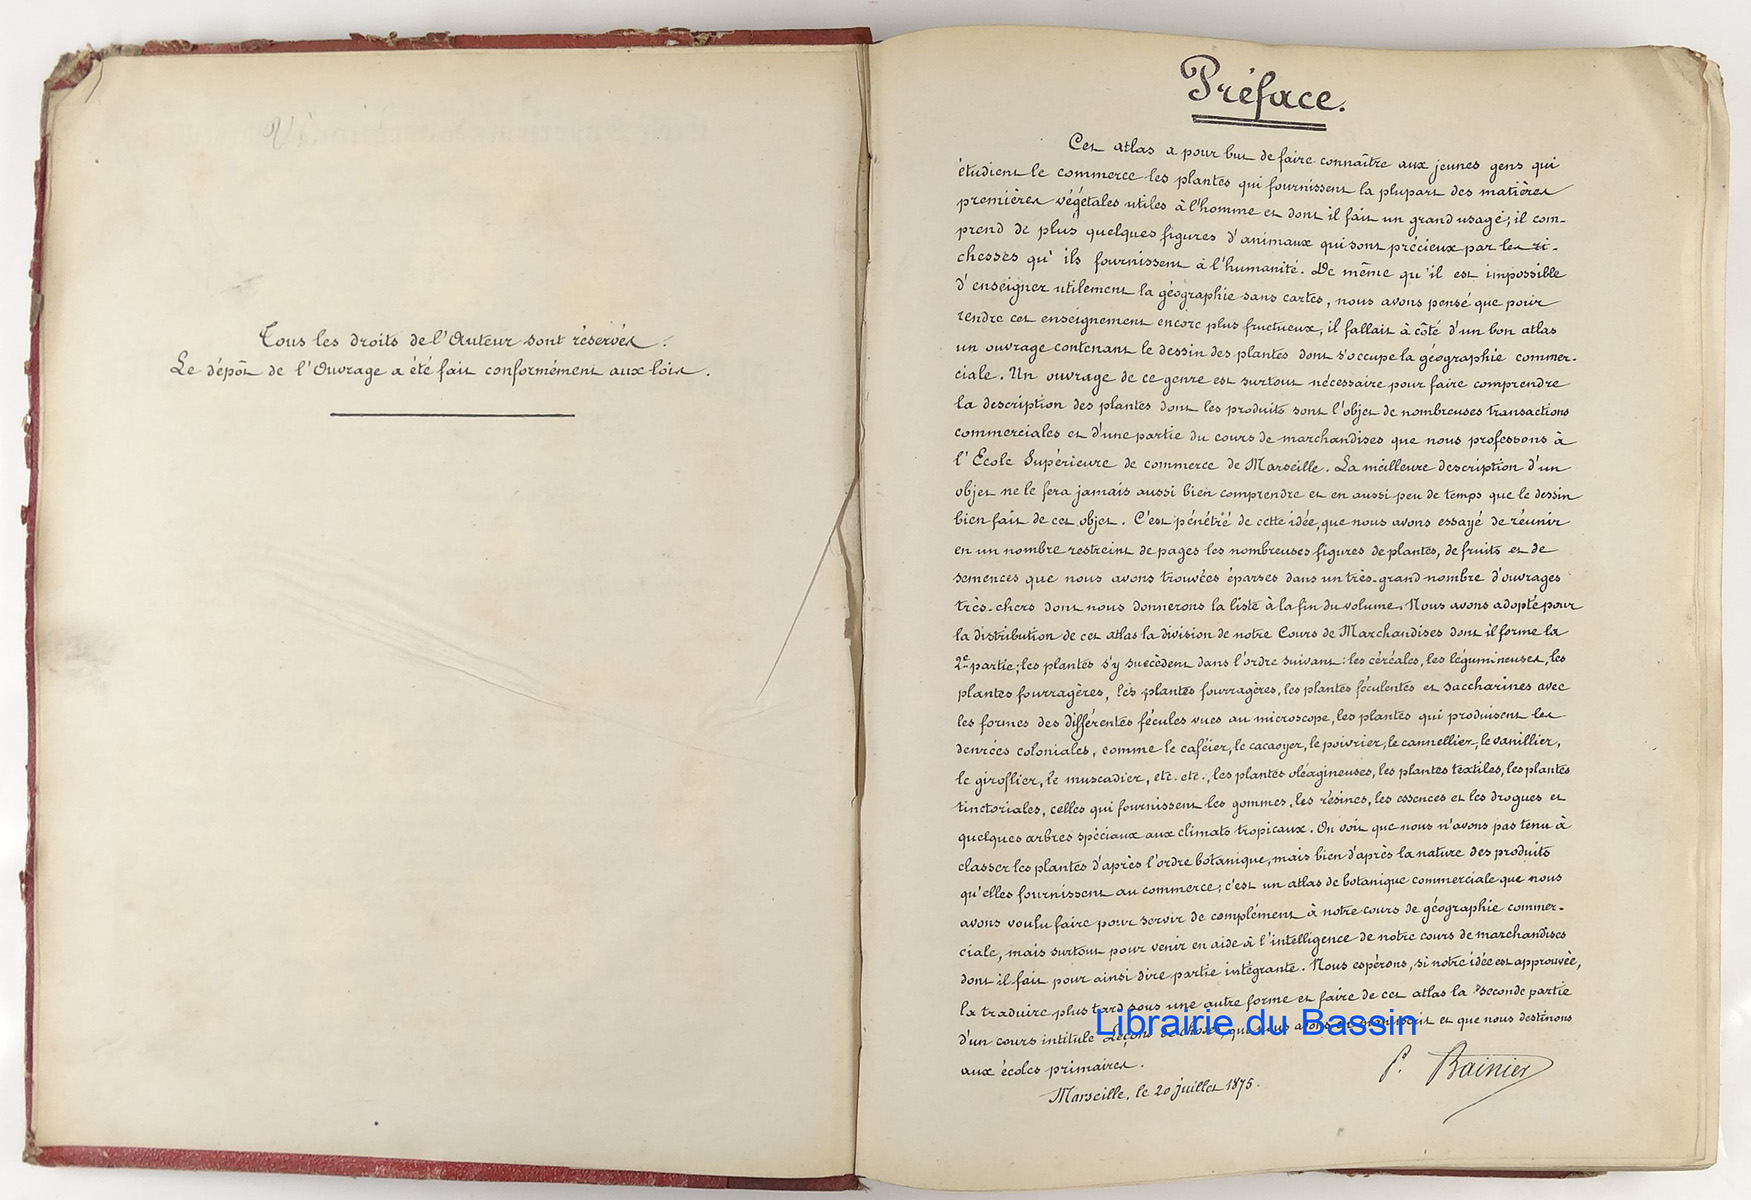 Tous les droits de l'Auteur sont réservés.
Le dépôt de l'Ouvrage a été fait conformément aux lois.
Préface.
Cet atlas a pour but de faire connaître aux jeunes gens qui
étudient le commerce les plantes qui fournissent la plupart des matières
premières végétales utiles à l'homme et dont il fait un grand usage; il com-
prend de plus quelques figures d'animaux qui sont précieux par les ri-
chesses qu'ils fournissent à l'humanité. De même qu'il est impossible
d'enseigner utilement la géographie sans cartes, nous avons pensé que pour
rendre cet enseignement encore plus fructueux, il fallait à côté d'un bon atlas
un ouvrage contenant le dessin des plantes dont s'occupe la géographie commer-
ciale. Un ouvrage de ce genre est surtout nécessaire pour faire comprendre
la description des plantes dont les produits sont l'objet de nombreuses transactions
commerciales et d'une partie du cours de marchandises que nous professons à
l'Ecole Supérieure de commerce de Marseille. La meilleure description d'un
objet ne le fera jamais aussi bien comprendre et en aussi peu de temps que le dessin
bien fait de cet objet. C'est pénétré de cette idée, que nous avons essayé de réunir
en un nombre restreint de pages les nombreuses figures de plantes, de fruits et de
semences que nous avons trouvées éparses dans un très-grand nombre d'ouvrages
très-chers dont nous donnerons la liste à la fin du volume. Nous avons adopté pour
la distribution de cet atlas la division de notre Cours de Marchandises dont il forme la
2e partie; les plantes s'y succèdent dans l'ordre suivant: les céréales, les légumineuses, les
plantes fourragères, les plantes fourragères, les plantes féculentes et saccharines avec
les formes des différentes fécules vues au microscope, les plantes qui produisent les
denrées coloniales, comme le caféier, le cacaoyer, le poivrier, le cannellier, le vanillier,
le giroflier, le muscadier, etc. etc., les plantes oléagineuses, les plantes textiles, les plantes
tinctoriales, celles qui fournissent les gommes, les résines, les essences et les drogues et
quelques arbres spéciaux aux climats tropicaux. On voit que nous n'avons pas tenu à
classer les plantes d'après l'ordre botanique, mais bien d'après la nature des produits
qu'elles fournissent au commerce; c'est un atlas de botanique commerciale que nous
avons voulu faire pour servir de complément à notre cours de géographie commer-
ciale, mais surtout pour venir en aide à l'intelligence de notre cours de marchandises
dont il fait pour ainsi dire partie intégrante. Nous espérons, si notre idée est approuvée,
la traduire plus tard sous une autre forme et faire de cet atlas la seconde partie
d'un cours intitulé Leçons de choses, que nous avons en manuscrit et que nous destinons
aux écoles primaires.
Marseille, le 20 juillet 1875.
P. Bainier
Librairie du Bassin